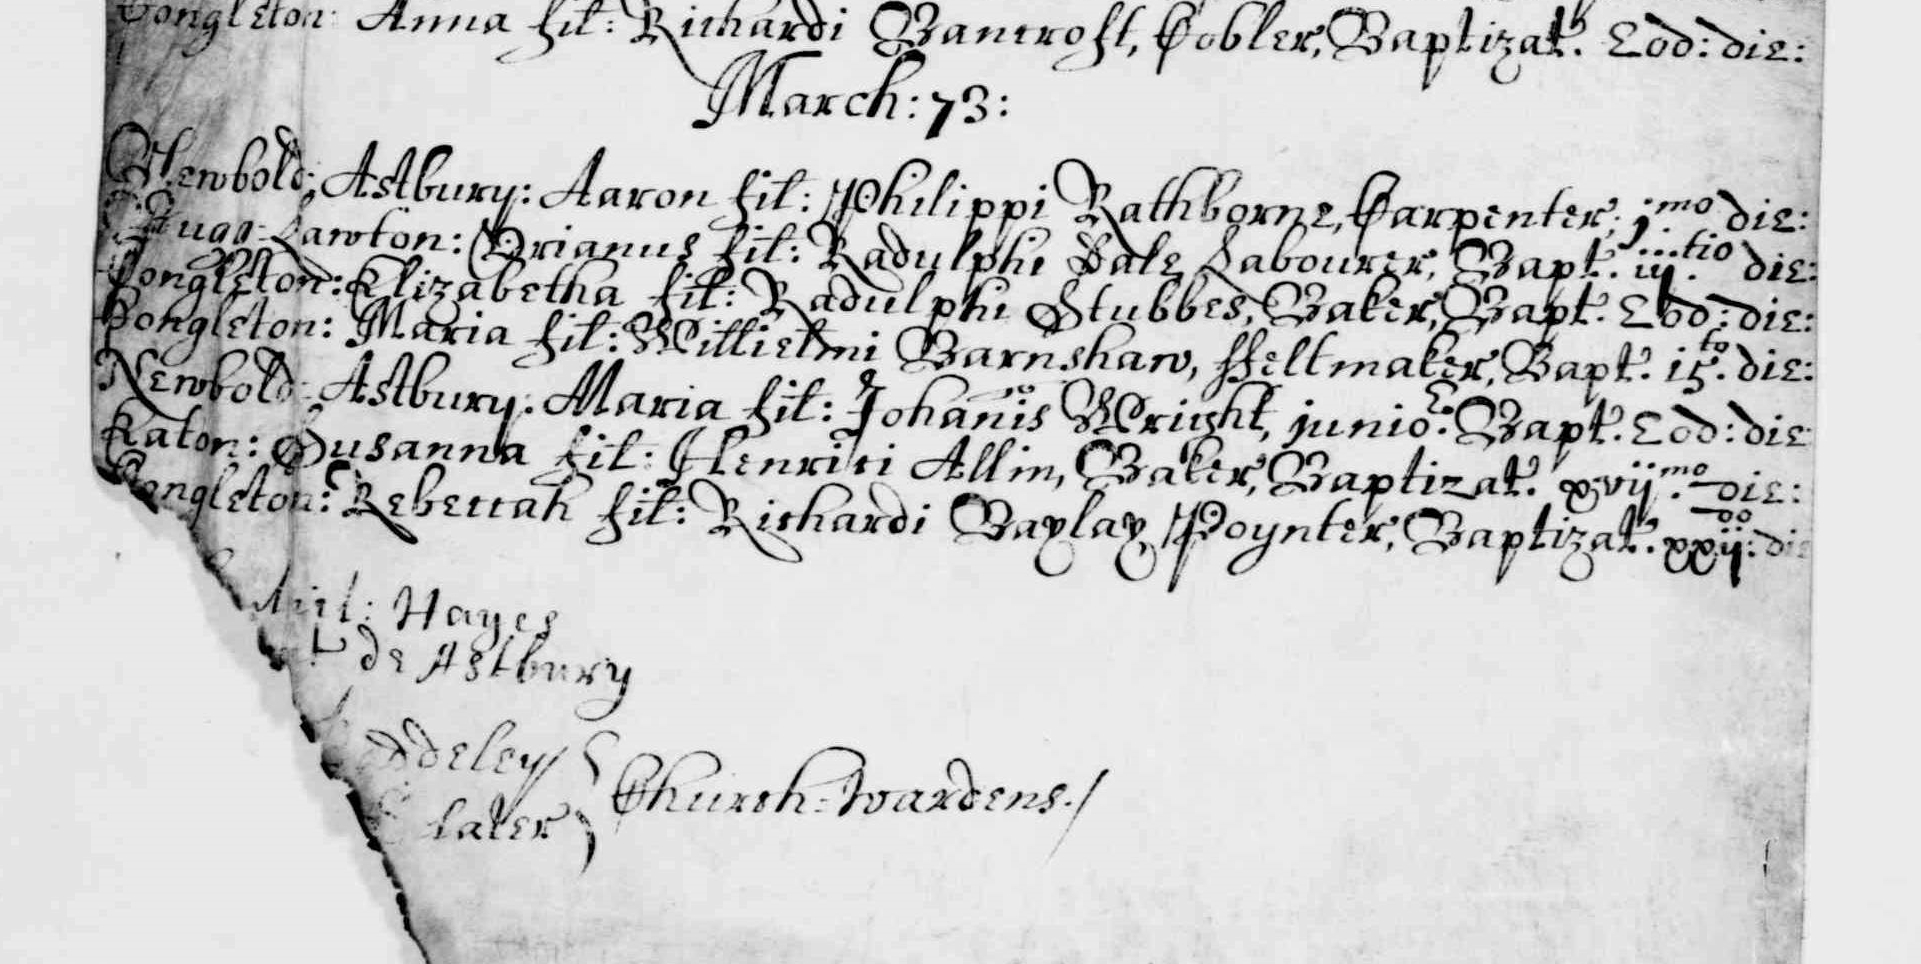 Congleton: Anna fil: Richardi Bancroft, Cobler, Baptizat. Eod: die:
March: 73:
Newbold: Astbury: Aaron fil: Philippi Rathborne, Carpenter, jmo die:
Lawton: Brianus fil: Radulphi Dale Labourer, Bapt. iij.tio die:
Congleton: Elizabetha fil: Radulphi Stubbes, Baker, Bapt. Eod: die:
Congleton: Maria fil: Willielmi Barnshaw, ffeltmaker, Bapt. 15.to die:
Newbold: Astbury: Maria fil: Johanis Wright, junior. Bapt. Eod: die
Eaton: Susanna fil: Henrici Allin, Baker, Baptizat. xvij.mo die:
Congleton: Rebeccah fil: Richardi Baylay, Poynter, Baptizat. xxij:do die
Hayes
de Astbury
ddeley
Church-wardens./
later